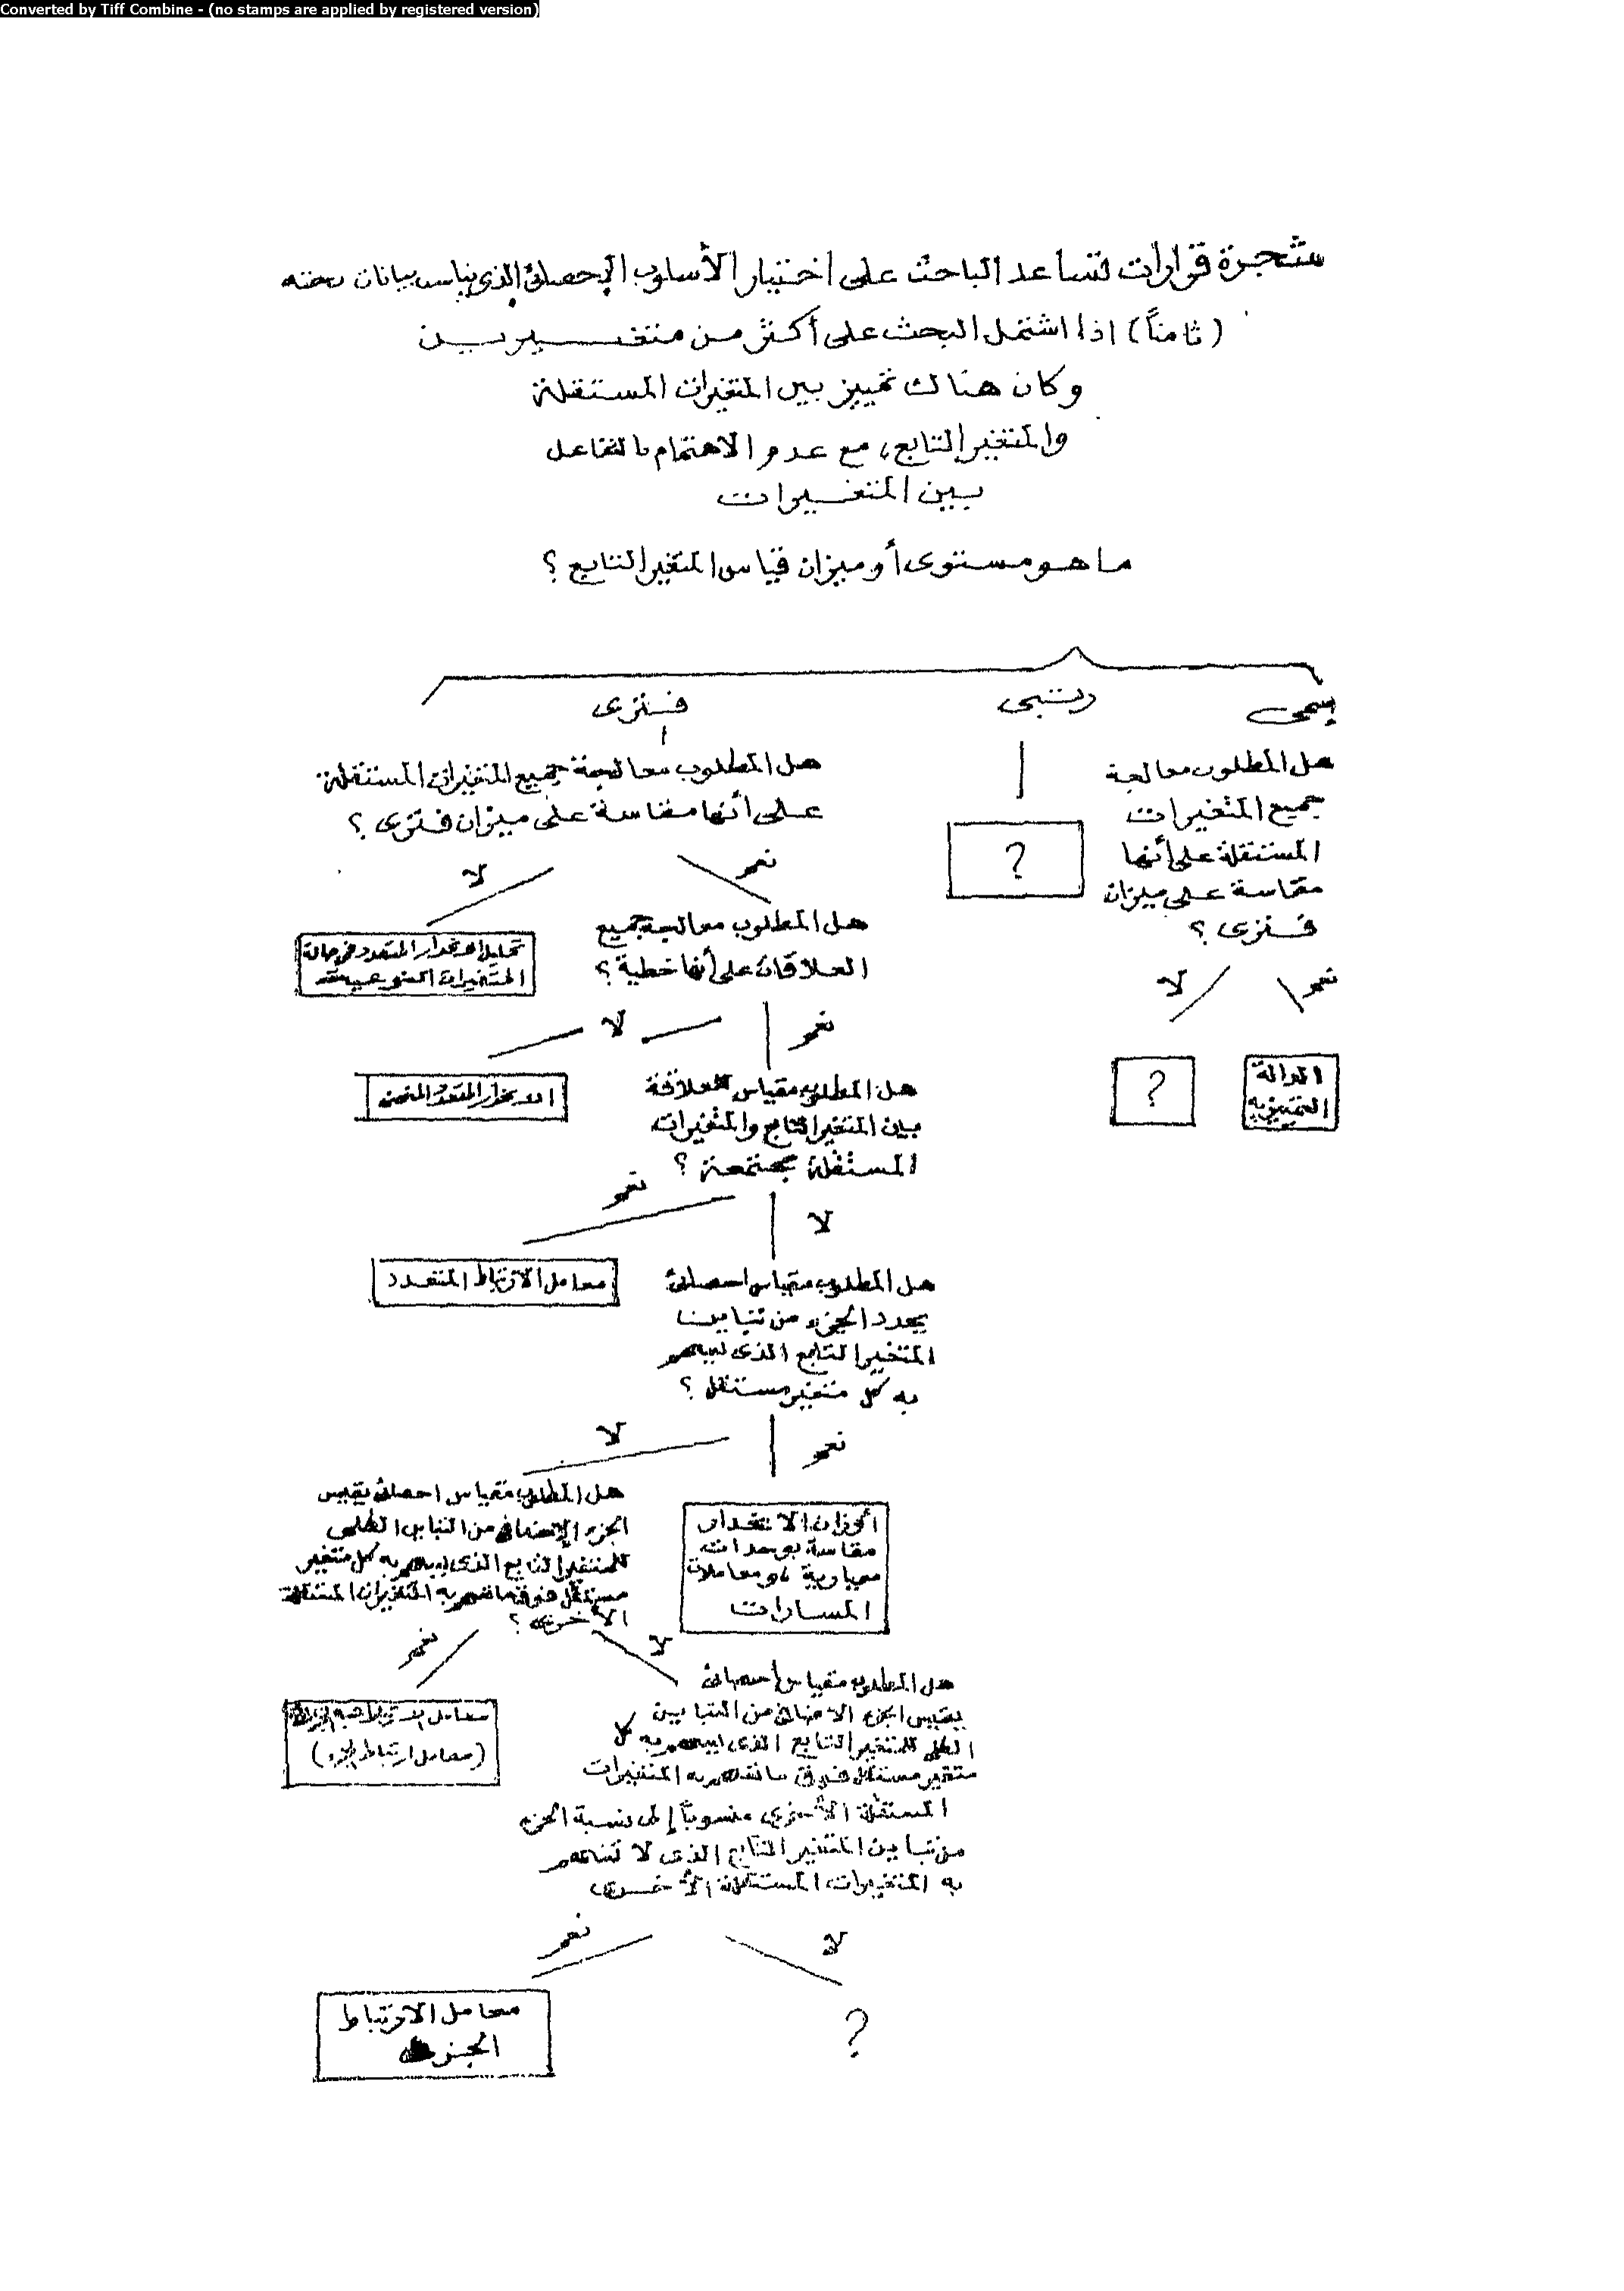 Converted by Tiff Combine - (no stamps are applied by registered version)
شجرة قرارات تساعد الباحث على اختيار الأسلوب الإحصائى الذى يناسب بيانات بحثه
(ثامناً) اذا اشتمل البحث على أكثر من متغيرين
وكان هناك تمييز بين المتغيرات المستقلة
والمتغير التابع، مع عدم الاهتمام بالتفاعل
بين المتغيرات
ما هو مستوى أو ميزان قياس المتغير التابع ؟
إسمى
رتبى
فترى
هل المطلوب معالجة
جميع المتغيرات
المستقلة على أنها
مقاسة على ميزان
فترى ؟
نعم
لا
الدالة
التمييزية
?
?
هل المطلوب معالجة جميع المتغيرات المستقلة
على أنها مقاسة على ميزان فترى ؟
نعم
لا
تحليل الانحدار المتعدد فى حالة
المتغيرات النوعية
هل المطلوب معالجة جميع
العلاقات على أنها خطية ؟
نعم
لا
الانحدار المتعدد المنحنى
هل المطلوب مقياس للعلاقة
بين المتغير التابع والمتغيرات
المستقلة مجتمعة ؟
نعم
لا
معامل الارتباط المتعدد
هل المطلوب مقياس احصائى
يحدد الجزء من تباين
المتغير التابع الذى يسهم
به كل متغير مستقل ؟
نعم
لا
أوزان الانحدار
مقاسة بوحدات
معيارية ، ومعاملات
المسارات
هل المطلوب مقياس احصائى يقيس
الجزء الإضافى من التباين الكلى
للمتغير التابع الذى يسهم به كل متغير
مستقل فوق ما تسهم به المتغيرات المستقلة
الأخرى ؟
نعم
لا
معامل الارتباط شبه الجزئى
(معامل ارتباط الجزء)
هل المطلوب مقياس إحصائى
يقيس الجزء الاضافى من التباين
الكلى للمتغير التابع الذى يسهم به كل
متغير مستقل فوق ما تسهم به المتغيرات
المستقلة الأخرى منسوباً إلى نسبة الجزء
من تباين المتغير التابع الذى لا تسهم
به المتغيرات المستقلة الأخرى
نعم
لا
معامل الارتباط
الجزئى
?